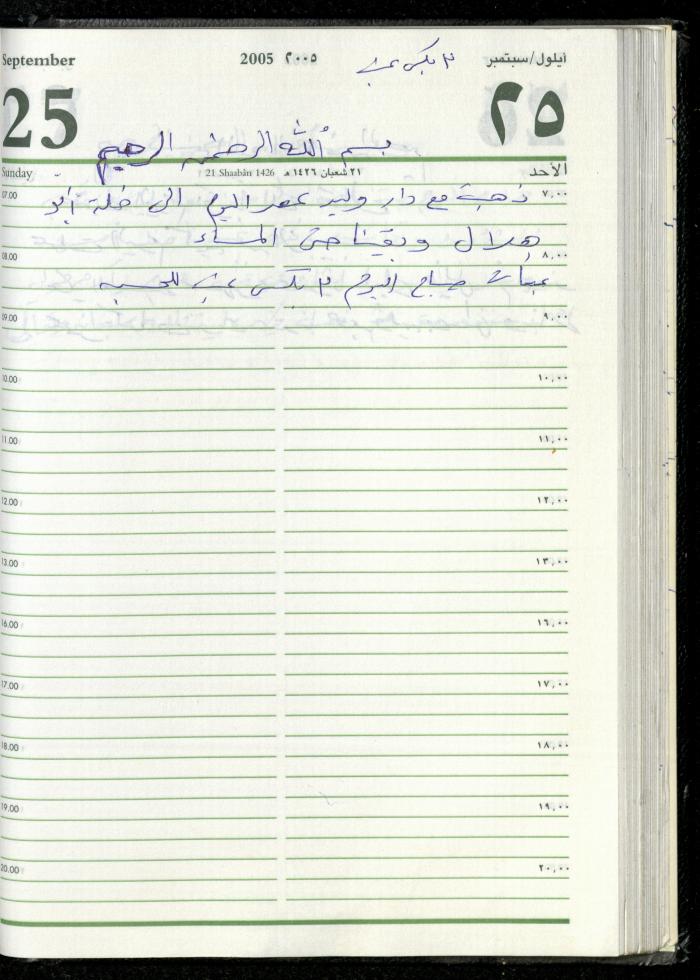 September 2005 ٢٠٠٥ ٣ بكس عنب أيلول/سبتمبر
25 ٢٥
بسم الله الرحمن الرحيم
Sunday 21 Shaabân 1426 ٢١ شعبان ١٤٢٦ هـ الأحد
07.00 ذهبت مع دار وليد عصر اليوم الى خلة ابو ٧,٠٠
هلال وبقينا حتى المساء
08.00 ٨,٠٠
عبأت صباح اليوم ٣ بكس عنب للحسبه
09.00 ٩,٠٠
10.00 ١٠,٠٠
11.00 ١١,٠٠
12.00 ١٢,٠٠
13.00 ١٣,٠٠
16.00 ١٦,٠٠
17.00 ١٧,٠٠
18.00 ١٨,٠٠
19.00 ١٩,٠٠
20.00 ٢٠,٠٠